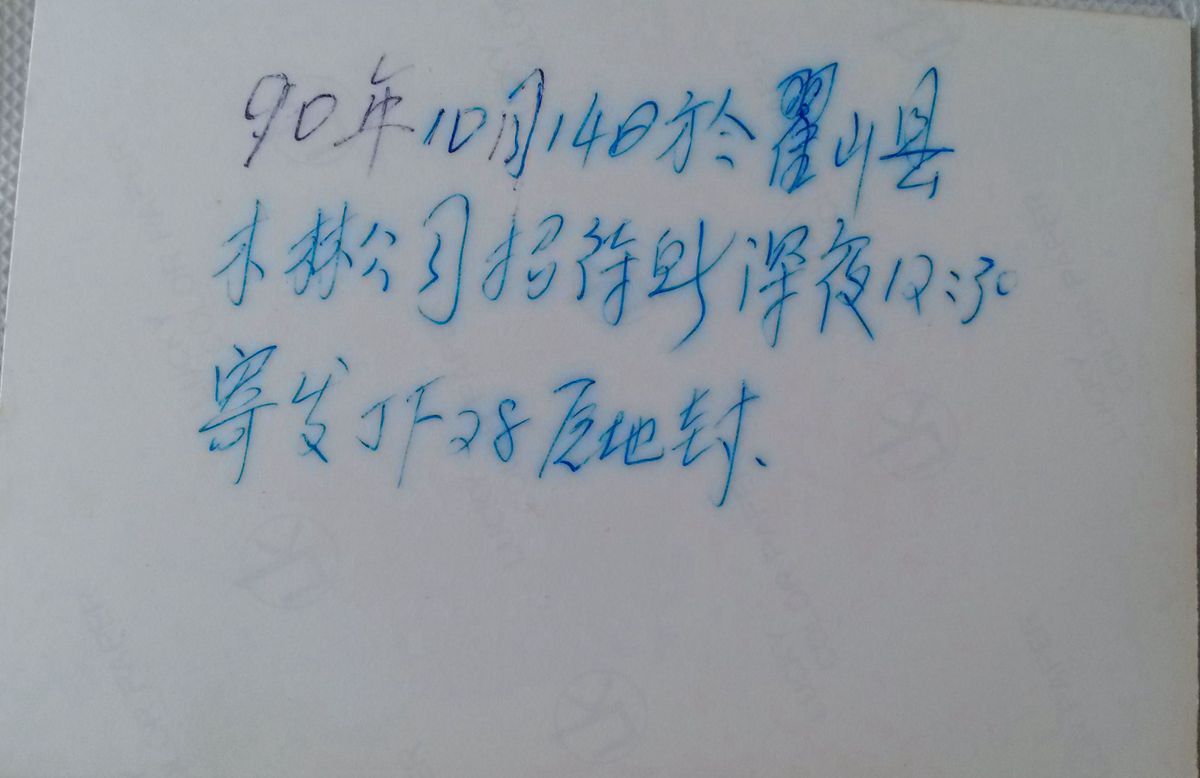 90年10月14日於瞿山县
木林公司招待所深夜12:30
寄发JF28原地封、